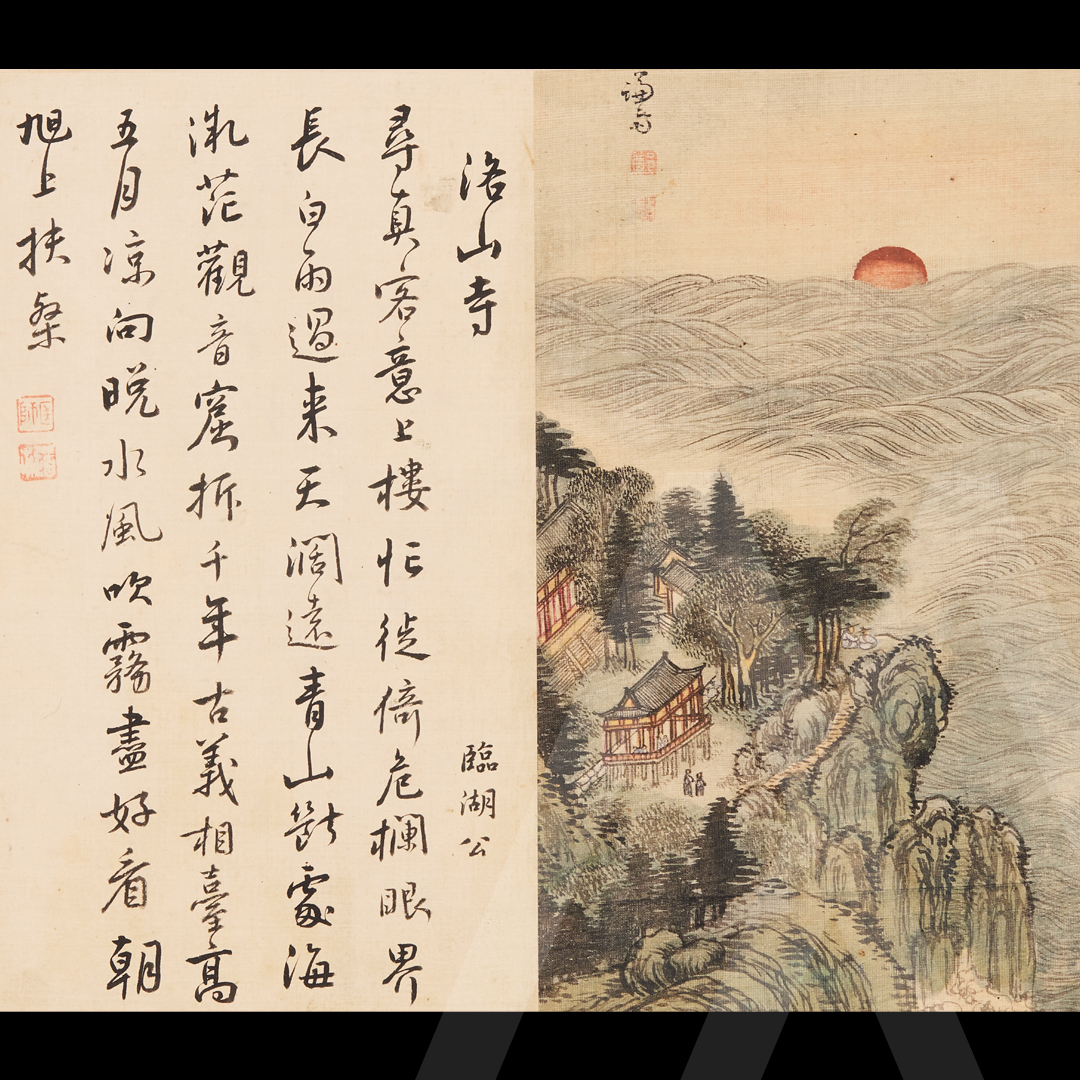 謙齋
洛山寺 臨湖公
尋真客意上樓忙徙倚危欄眼界
長白雨過来天濶遠青山斷處海
茫觀音窟拆千年古義相臺高
五月凉向晩水風吹霧盡好看朝
旭上扶桒